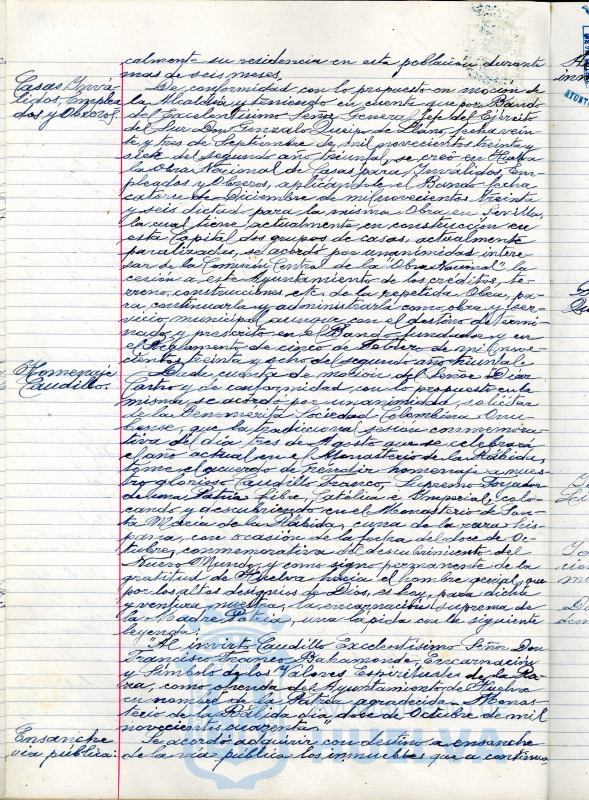 calmente su residencia en esta población durante
mas de seis meses.
Casas Invá-
lidos, Emplea-
dos y Obreros.
De conformidad con lo propuesto en moción de
la Alcaldía y teniendo en cuenta que por Bando
del Excelentísimo Señor General Jefe del Ejército
del Sur Don Gonzalo Queipo de Llano, fecha vein-
te y tres de Septiembre de mil novecientos treinta y
siete del segundo año triunfal, se creó en Huelva
la Obra Nacional de Casas para Inválidos, Em-
pleados y Obreros, aplicándole el Bando fecha
catorce de Diciembre de mil novecientos treinta
y seis dictado para la misma Obra en Sevilla,
la cual tiene actualmente en construcción en
esta Capital dos grupos de casas, actualmente
paralizados, se acordó por unanimidad intere-
sar de la Comisión Central de la "Obra Nacional" la
cesión a este Ayuntamiento de los créditos, te-
rrenos, construcciones etc. de la repetida Obra, pa-
ra continuarla y administrarla como obra y ser-
vicio municipal, aunque con el destino determi-
nado y prescrito en el Bando fundador y en
el Reglamento de cinco de Febrero de mil nove-
cientos treinta y ocho del segundo año triunfal.
Homenaje
Caudillo.
Dada cuenta de moción del Señor Díaz
Castro y de conformidad con lo propuesto en la
misma, se acordó por unanimidad, solicitar
de la Benemérita Sociedad Colombina Onu-
bense, que la tradicional sesión conmemora-
tiva del día tres de Agosto que se celebrará
el año actual en el Monasterio de la Rábida,
tome el acuerdo de rendir homenaje a nues-
tro glorioso Caudillo Franco, Supremo Forjador
de una Patria libre, Católica e Imperial, colo-
cando y descubriendo en el Monasterio de San-
ta María de la Rábida, cuna de la raza his-
pana, con ocasión de la fecha del doce de Oc-
tubre, conmemorativa del descubrimiento del
Nuevo Mundo, y como signo permanente de la
gratitud de Huelva hacia el hombre genial, que
por los altos designios de Dios, es hoy, para dicha
y ventura nuestra, la encarnación suprema de
la Madre Patria, una lápida con la siguiente
leyenda:
"Al invicto Caudillo Excelentísimo Señor Don
Francisco Franco Bahamonde, Encarnación
y Símbolo de los Valores Espirituales de la Ra-
za, como ofrenda del Ayuntamiento de Huelva
en nombre de la Patria agradecida. Monas-
terio de la Rábida día doce de Octubre de mil
novecientos cuarenta.
Ensanche
vía pública:
Se acordó adquirir con destino a ensanche
de la vía pública los inmuebles que a continua-
HUELVA